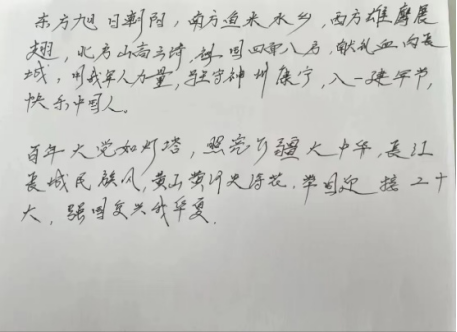 东方旭日朝阳，南方鱼米水乡，西方雄鹰展
翅，北方山高，祖国四面八方，献礼血肉长
城，用我军人力量，驻守神州康宁，八一建军节，
快乐中国人。
百年大党如灯塔，照亮疆大中华，长江
长城民族风，黄山黄河，举国迎接二十
大，强国复兴我华夏。